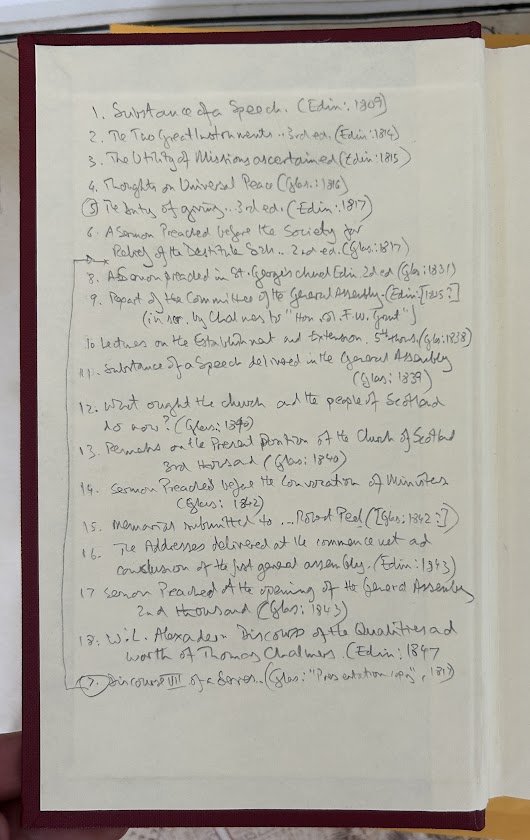 1. Substance of a Speech. (Edin: 1809)
2. The Two Great Instruments .. 3rd ed. (Edin: 1814)
3. The Utility of Missions ascertained (Edin: 1815)
4. Thoughts on Universal Peace (Glas: 1816)
5 The duty of giving .. 3rd ed. (Edin: 1817)
6. A Sermon Preached before the Society for
Relief of the Destitute Sick .. 2nd ed. (Glas: 1817)
8. A Sermon preached in St. George's church Edin. 2d ed (Glas: 1831)
9. Report of the Committee of the General Assembly. (Edin: [1835?]
(inscr. by Chalmers to "Hon. Col. F.W. Grant")
10 Lectures on the Establishment and Extension. 5th thous. (Glas: 1838)
11. Substance of a Speech delivered in the General Assembly
(Glas: 1839)
12. What ought the church and the people of Scotland
do now? (Glas: 1840)
13. Remarks on the Present Position of the Church of Scotland
3rd thousand (Glas: 1840)
14. Sermon Preached before the Convocation of Ministers
(Glas: 1842)
15. Memorial submitted to ... Robert Peel ([Glas: 1842?])
16. The Addresses delivered at the commencement and
conclusion of the first general assembly. (Edin: 1843)
17 Sermon Preached at the opening of the General Assembly
2nd thousand (Glas: 1843)
18. W.L. Alexander Discourse of the Qualities and
worth of Thomas Chalmers. (Edin: 1847
7. Discourse VIII of a Series.. (Glas: "Presentation copy", 1817)